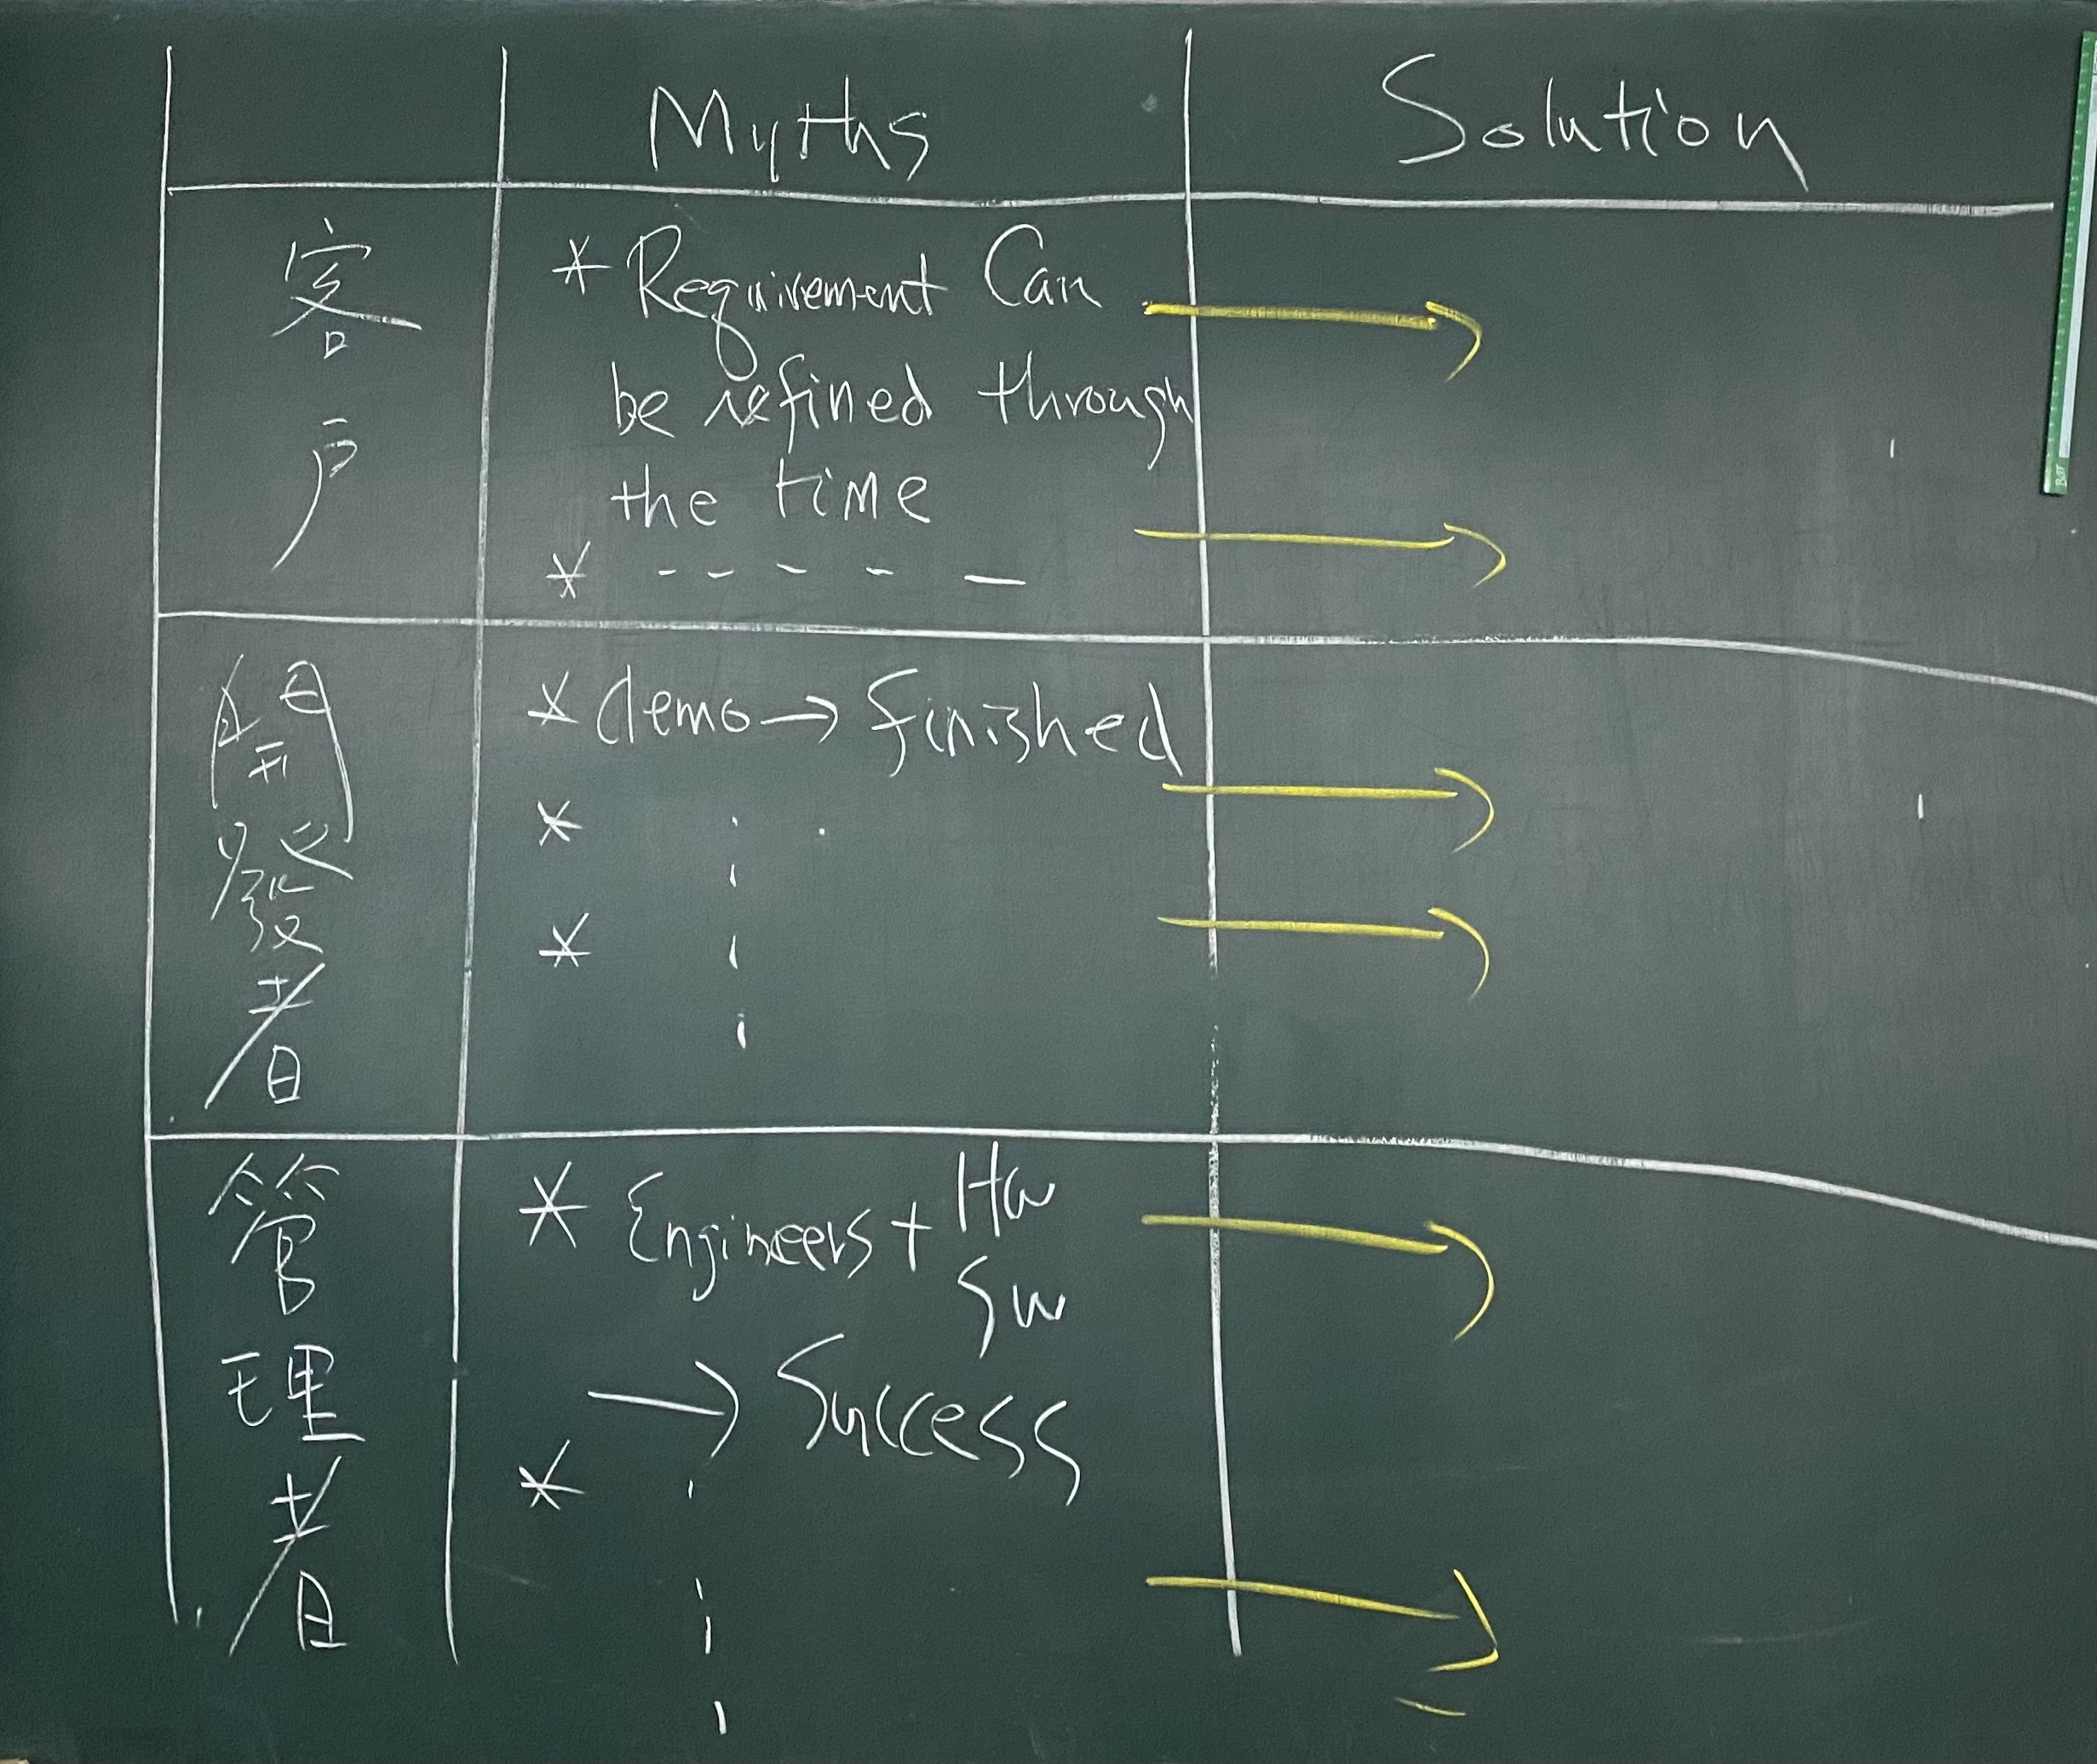 Myths
Solution
客戶
* Requirement Can
be refined through
the time
* - - - - -
開發者
* demo → finished
*
*
管理者
* Engineers + HW
SW
→ Success
*